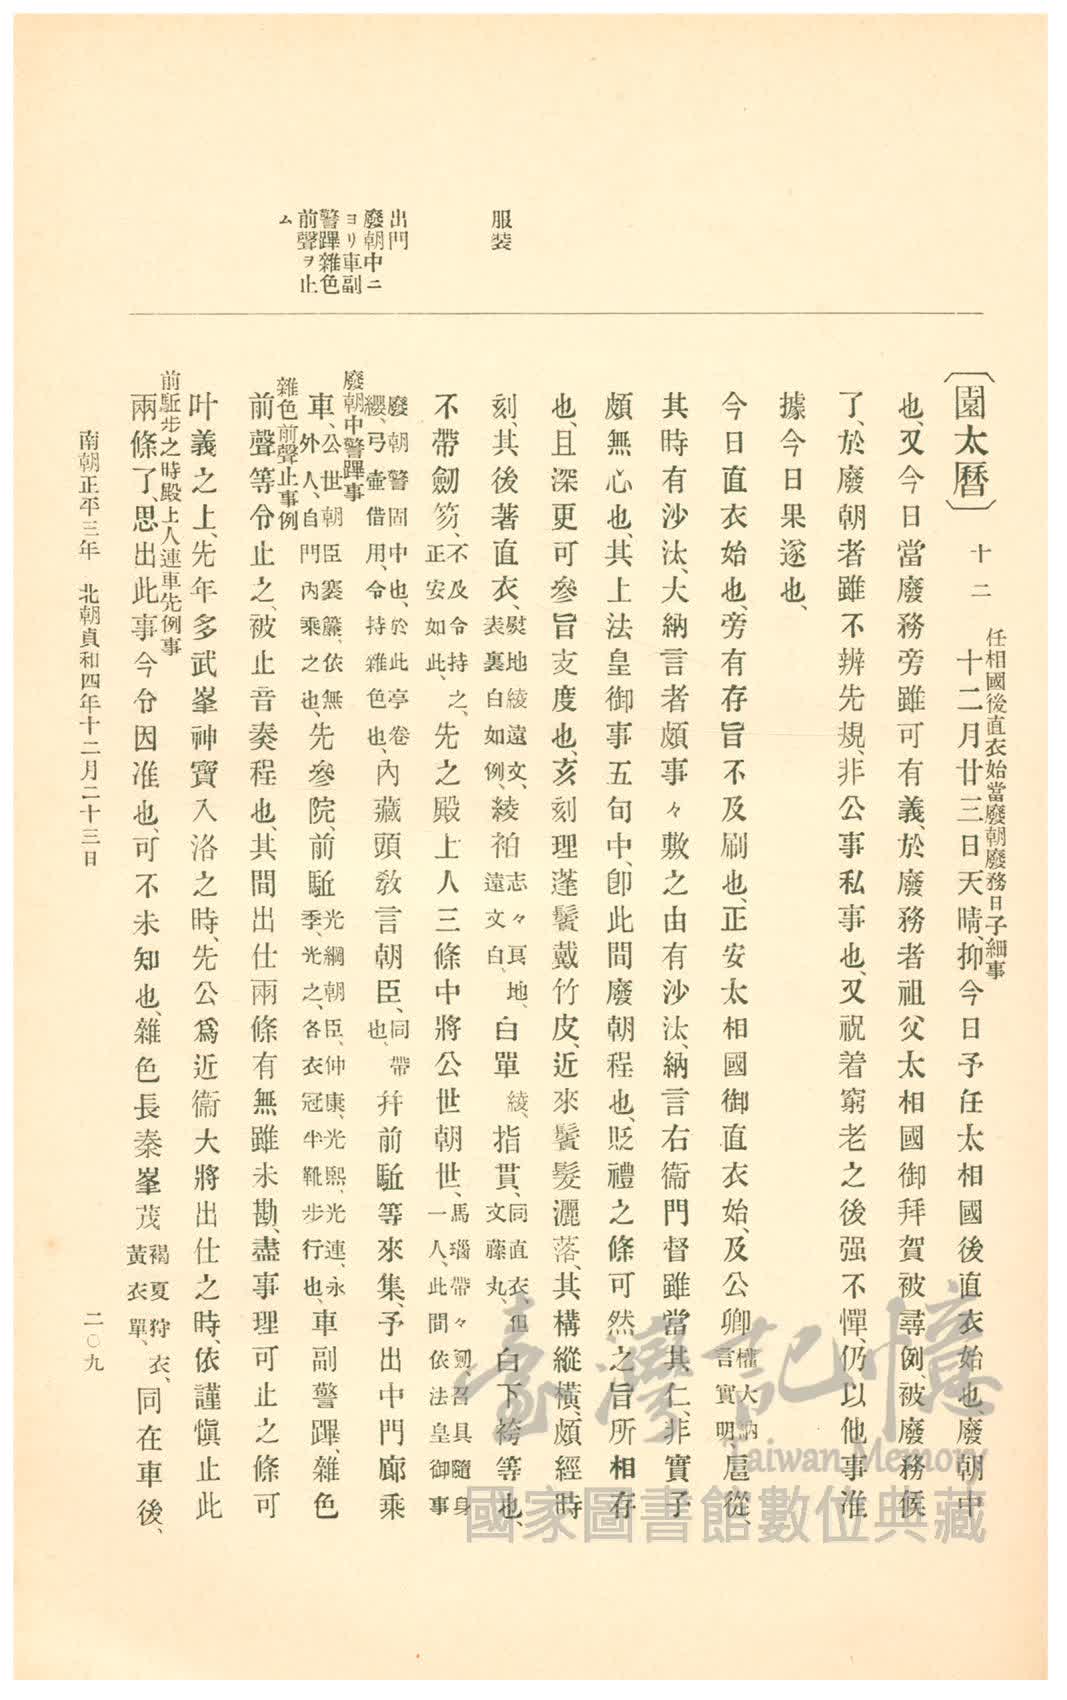 服装
出門
廢朝中ニ
ヨリ車副
警蹕雜色
前聲ヲ止
ム
〔園太曆〕 十二 十二月廿三日、天晴、抑今日予任太相國後直衣始也、廢朝中
任相國後直衣始當廢朝廢務日子細事
也、又今日當廢務旁雖可有義、於廢務者祖父太相國御拜賀被尋例、被廢務候
了、於廢朝者雖不辨先規、非公事私事也、又祝着窮老之後强不憚、仍以他事准
據今日果遂也、
今日直衣始也、旁有存旨不及刷也、正安太相國御直衣始、及公卿權大納言實明、扈從、
其時有沙汰、大納言者頗事々敷之由有沙汰、納言右衞門督雖當其仁、非實子
頗無心也、其上法皇御事五旬中、卽此間廢朝程也、貶禮之條可然之旨所相存
也、且深更可參旨支度也、亥刻理蓬鬢戴竹皮、近來鬢髮灑落、其構縱橫、頗經時
刻、其後著直衣、熨地綾遠文、表裏白如例、綾袙志々良地、遠文白、白單綾、指貫、同直衣、但文藤丸、白下袴等也、
不帶劒笏、不及令持之、正安如此、先之殿上人三條中將公世朝世、馬瑙帶々劒、召具隨身一人、此間依法皇御事
廢朝警固中也、於此亭卷纓、弓壷借用、令持雜色也、內藏頭敎言朝臣、同帶也、幷前駈等來集、予出中門廊乘
廢朝中警蹕事
車、公世朝臣褰簾、依無外人、自門內乘之也、先參院、前駈光綱朝臣、仲康、光熙、光連、永季、光之、各衣冠半靴步行也、車副警蹕、雜色
雜色前聲止事例
前聲等令止之、被止音奏程也、其間出仕兩條有無雖未勘、盡事理可止之條可
叶義之上、先年多武峯神寶入洛之時、先公爲近衞大將出仕之時、依謹愼止此
前駈步之時殿上人連車先例事
兩條了、思出此事今令因准也、可不未知也、雜色長秦峯茂褐夏狩衣、黃衣單、同在車後、
南朝正平三年 北朝貞和四年十二月二十三日
二〇九
臺灣記憶
Taiwan Memory
國家圖書館數位典藏